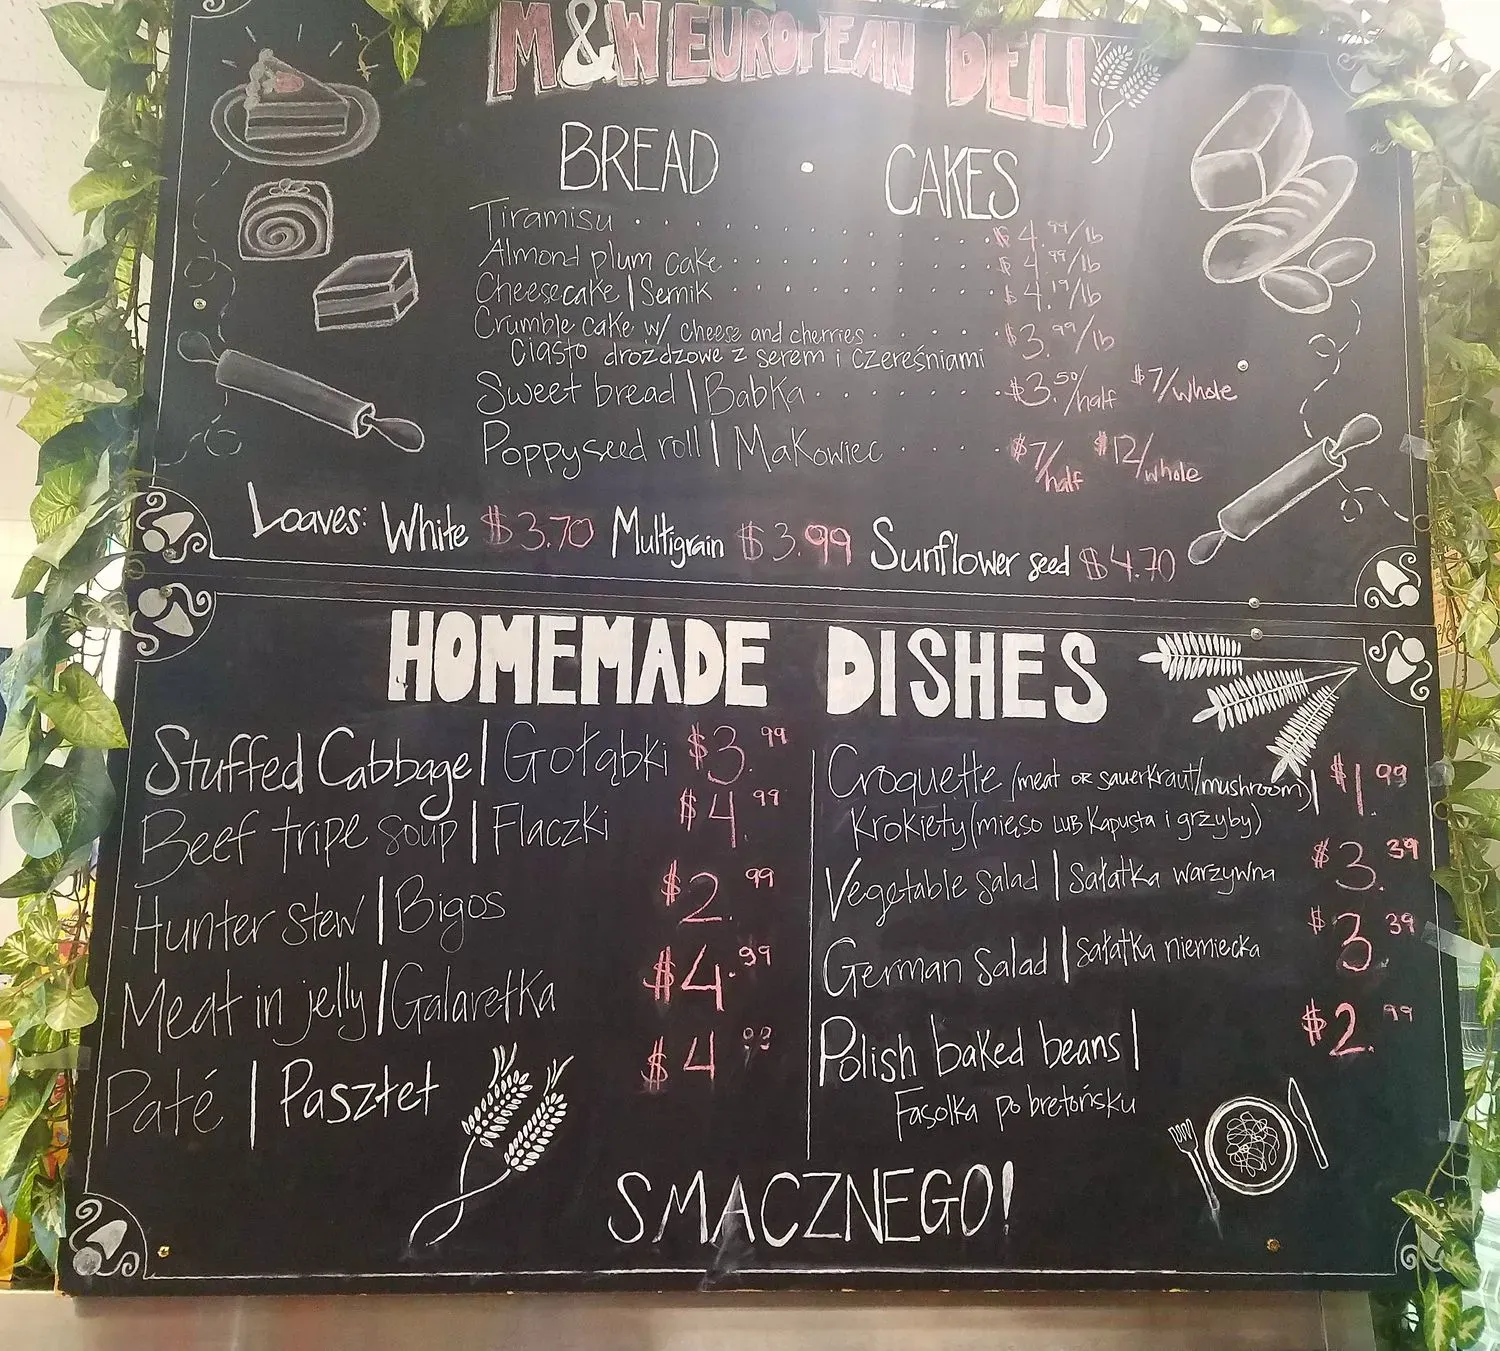 M&W EUROPEAN DELI
BREAD • CAKES
Tiramisu . . . . . . . . . . . . $4.99/lb
Almond plum cake . . . . . . . . . . $4.99/lb
Cheesecake | Sernik . . . . . . . . . . $4.19/lb
Crumble cake w/ cheese and cherries . . . . . $3.99/lb
Ciasto drozdzowe z serem i czereśniami
Sweet bread | Babka . . . . . . . $3.50/half $7/whole
Poppyseed roll | Makowiec . . . . . $7/half $12/whole
Loaves: White $3.70 Multigrain $3.99 Sunflower seed $4.70
HOMEMADE DISHES
Stuffed Cabbage | Gołąbki $3.99
Beef tripe soup | Flaczki $4.99
Hunter stew | Bigos $2.99
Meat in jelly | Galaretka $4.99
Paté | Pasztet $4.99
Croquette (meat OR sauerkraut/mushroom) | $1.99
Krokiety (mięso LUB kapusta i grzyby)
Vegetable salad | Sałatka warzywna $3.39
German salad | sałatka niemiecka $3.39
Polish baked beans | $2.99
Fasolka po bretońsku
SMACZNEGO!